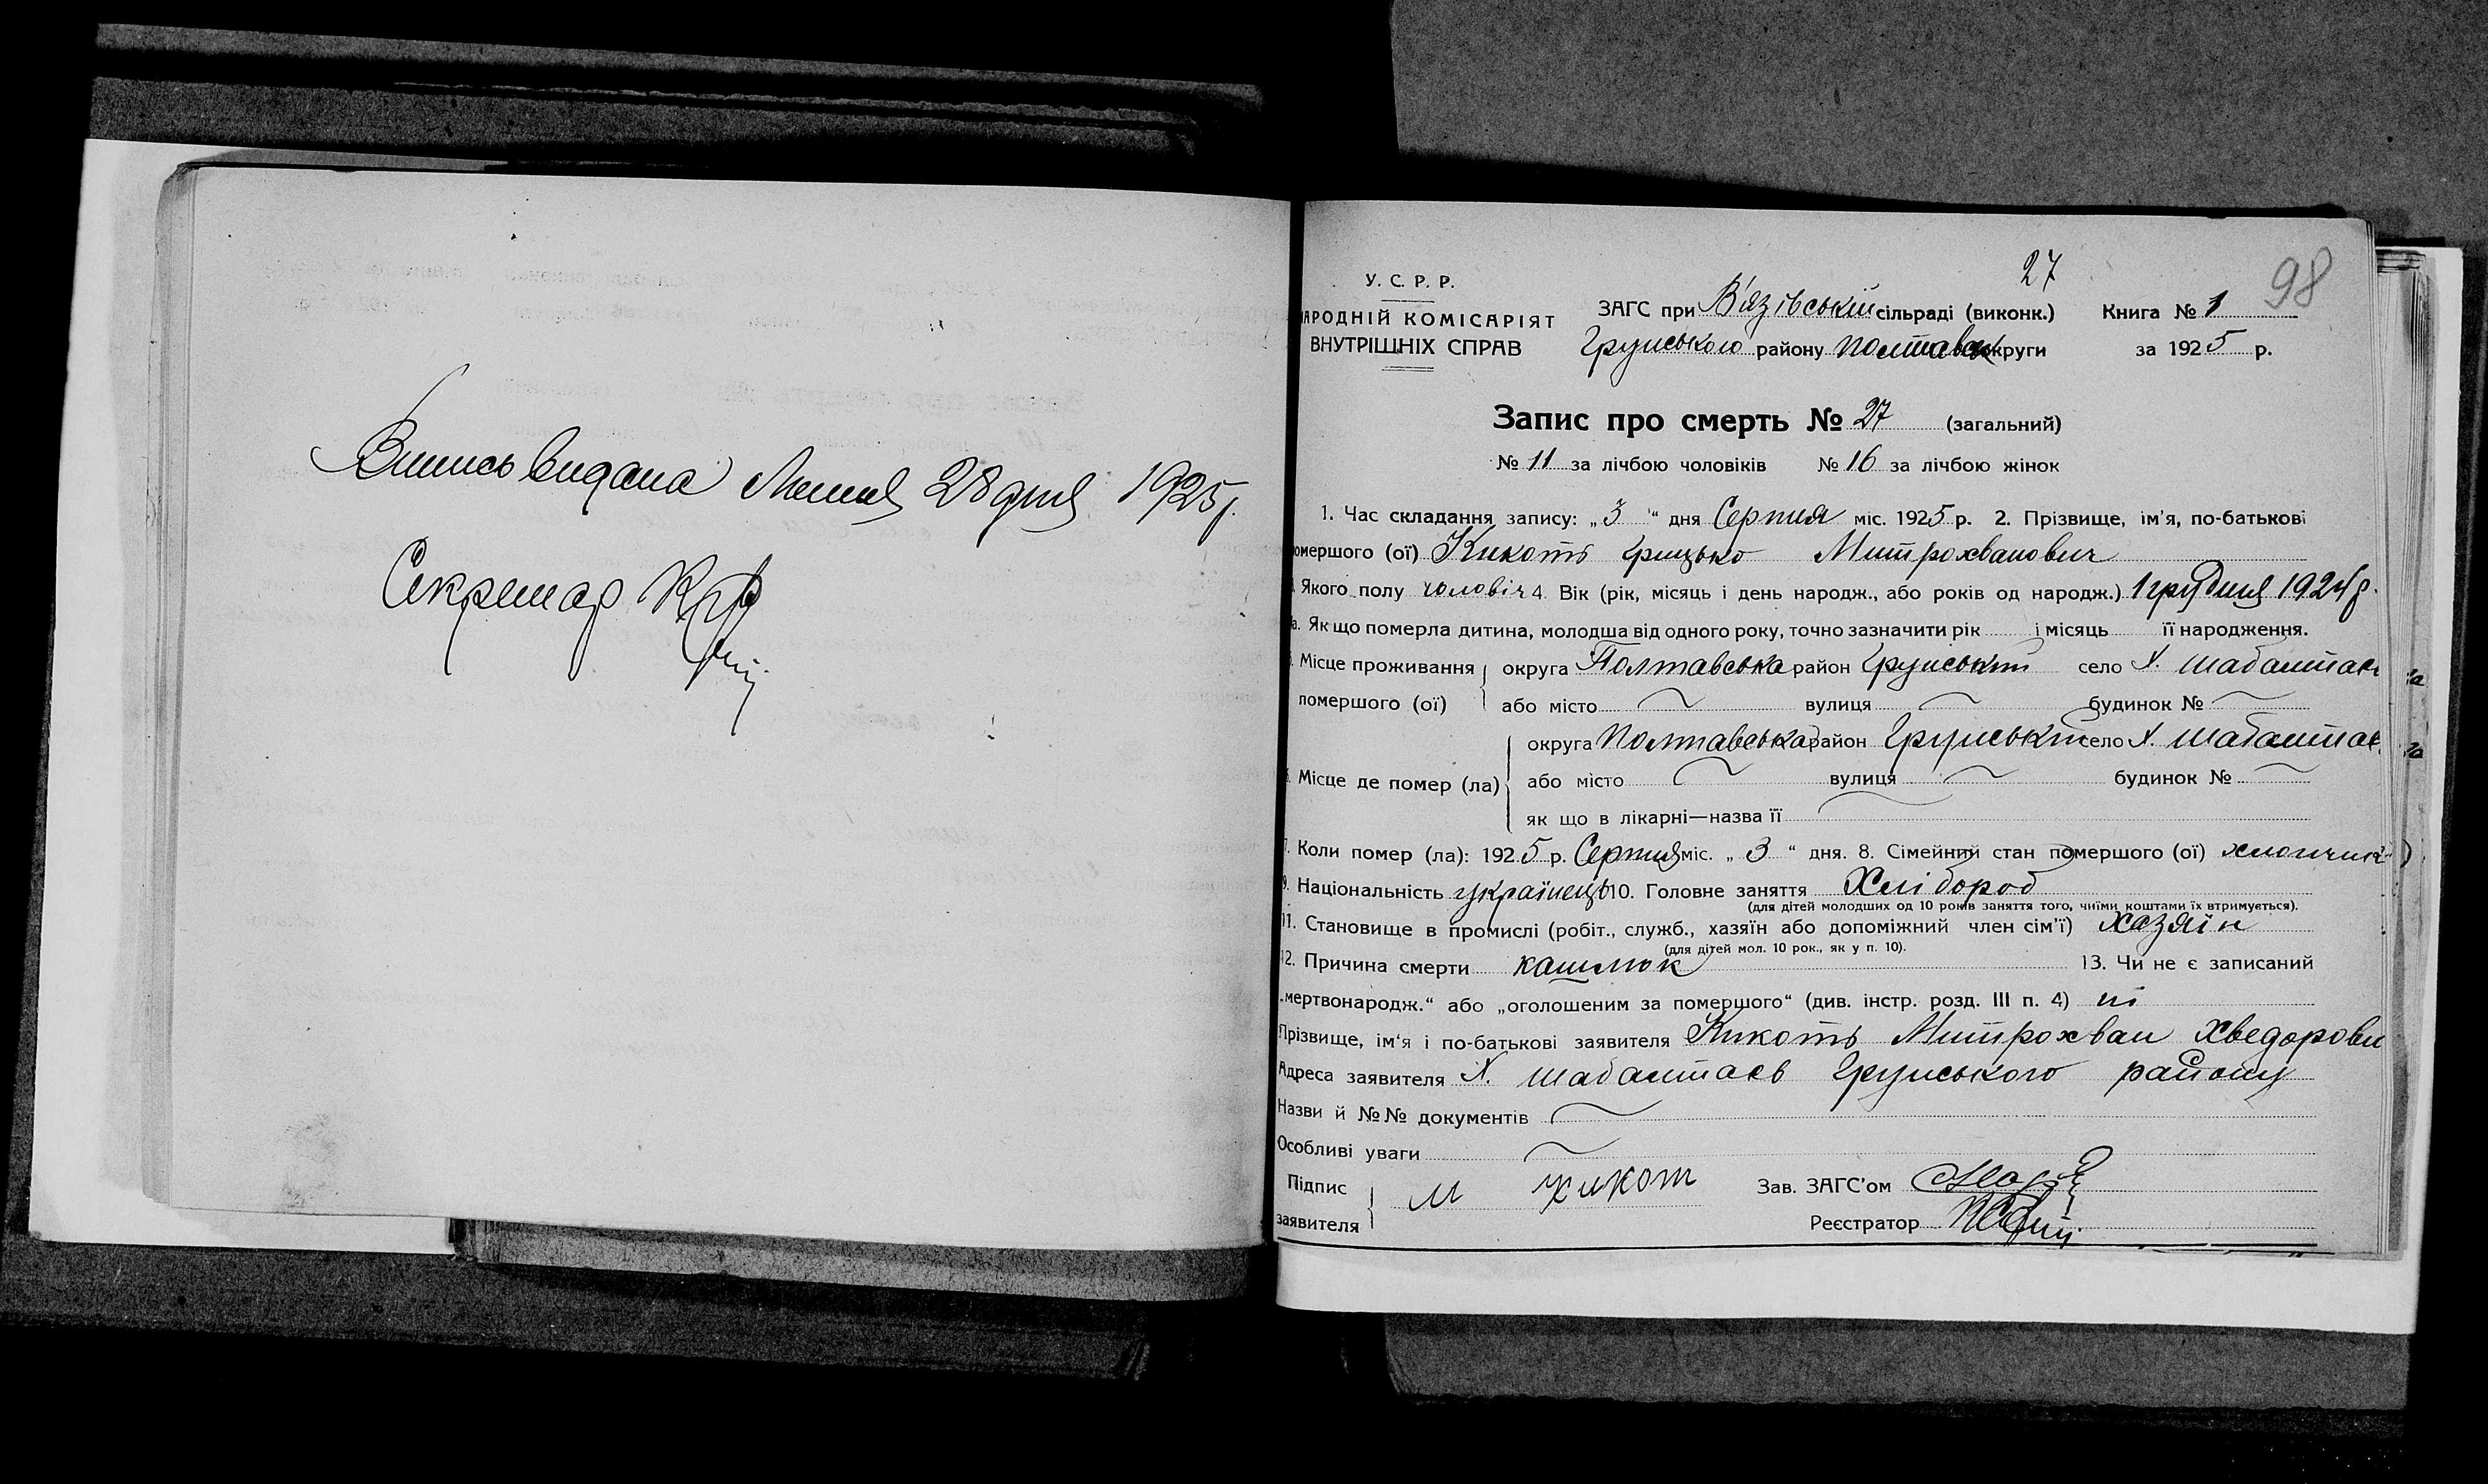 Випись видана Липня 28 дня 1925 р.
Секретар
27
98
У. С. Р. Р.
НАРОДНІЙ КОМІСАРІЯТ
ВНУТРІШНІХ СПРАВ
ЗАГС при В'язівській сільраді (виконк.) Книга № 1
Грунського району Полтавськ округи за 1925 р.
Запис про смерть № 27 (загальний)
№ 11 за лічбою чоловіків № 16 за лічбою жінок
1. Час складання запису: „3“ дня Серпня міс. 1925 р. 2. Прізвище, ім'я, по-батькові
омершого (ої) Кикоть Грицько Митрохванович
Якого полу чоловіч 4. Вік (рік, місяць і день народж., або років од народж.) 1 грудня 1924 р.
а. Як що померла дитина, молодша від одного року, точно зазначити рік і місяць її народження.
Місце проживання округа Полтавська район Грунський село Х. Шабаштаєв
помершого (ої) або місто вулиця будинок №
округа Полтавська район Грунський село Х. Шабаштаєв
Місце де помер (ла) або місто вулиця будинок №
як що в лікарні—назва її
7. Коли помер (ла): 1925 р. Серпня міс. „3“ дня. 8. Сімейний стан помершого (ої) хлопчик
9. Національність українець 10. Головне заняття Хлібороб
(для дітей молодших од 10 років заняття того, чиїми коштами їх втримується).
11. Становище в промислі (робіт., служб., хазяїн або допоміжний член сім'ї) хазяїн
(для дітей мол. 10 рок., як у п. 10).
12. Причина смерти кашлюк 13. Чи не є записаний
„мертвонародж.“ або „оголошеним за помершого“ (див. інстр. розд. III п. 4) ні
Прізвище, ім'я і по-батькові заявителя Кикоть Митрохван Хведорови
Адреса заявителя Х. Шабаштаєв Грунського району
Назви й №№ документів
Особливі уваги
Підпис заявителя М Кикот Зав. ЗАГС'ом
Реєстратор